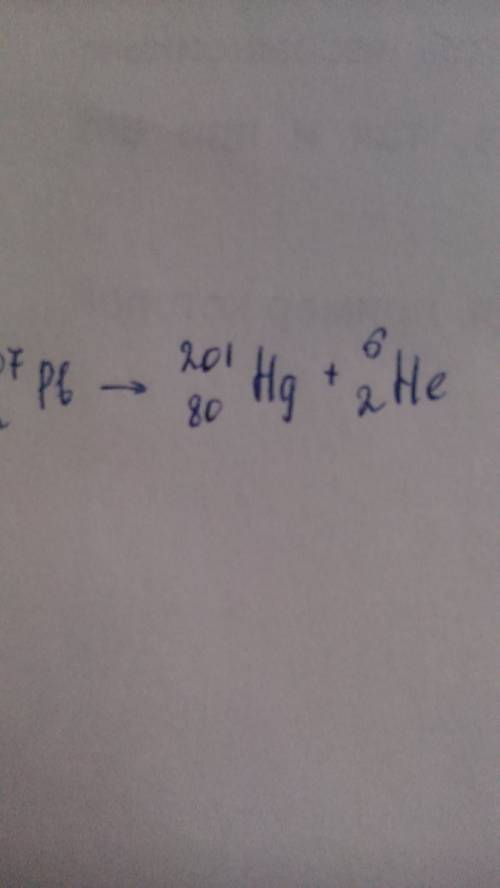 07 Pb → ²⁰¹₈₀ Hg + ⁶₂ He